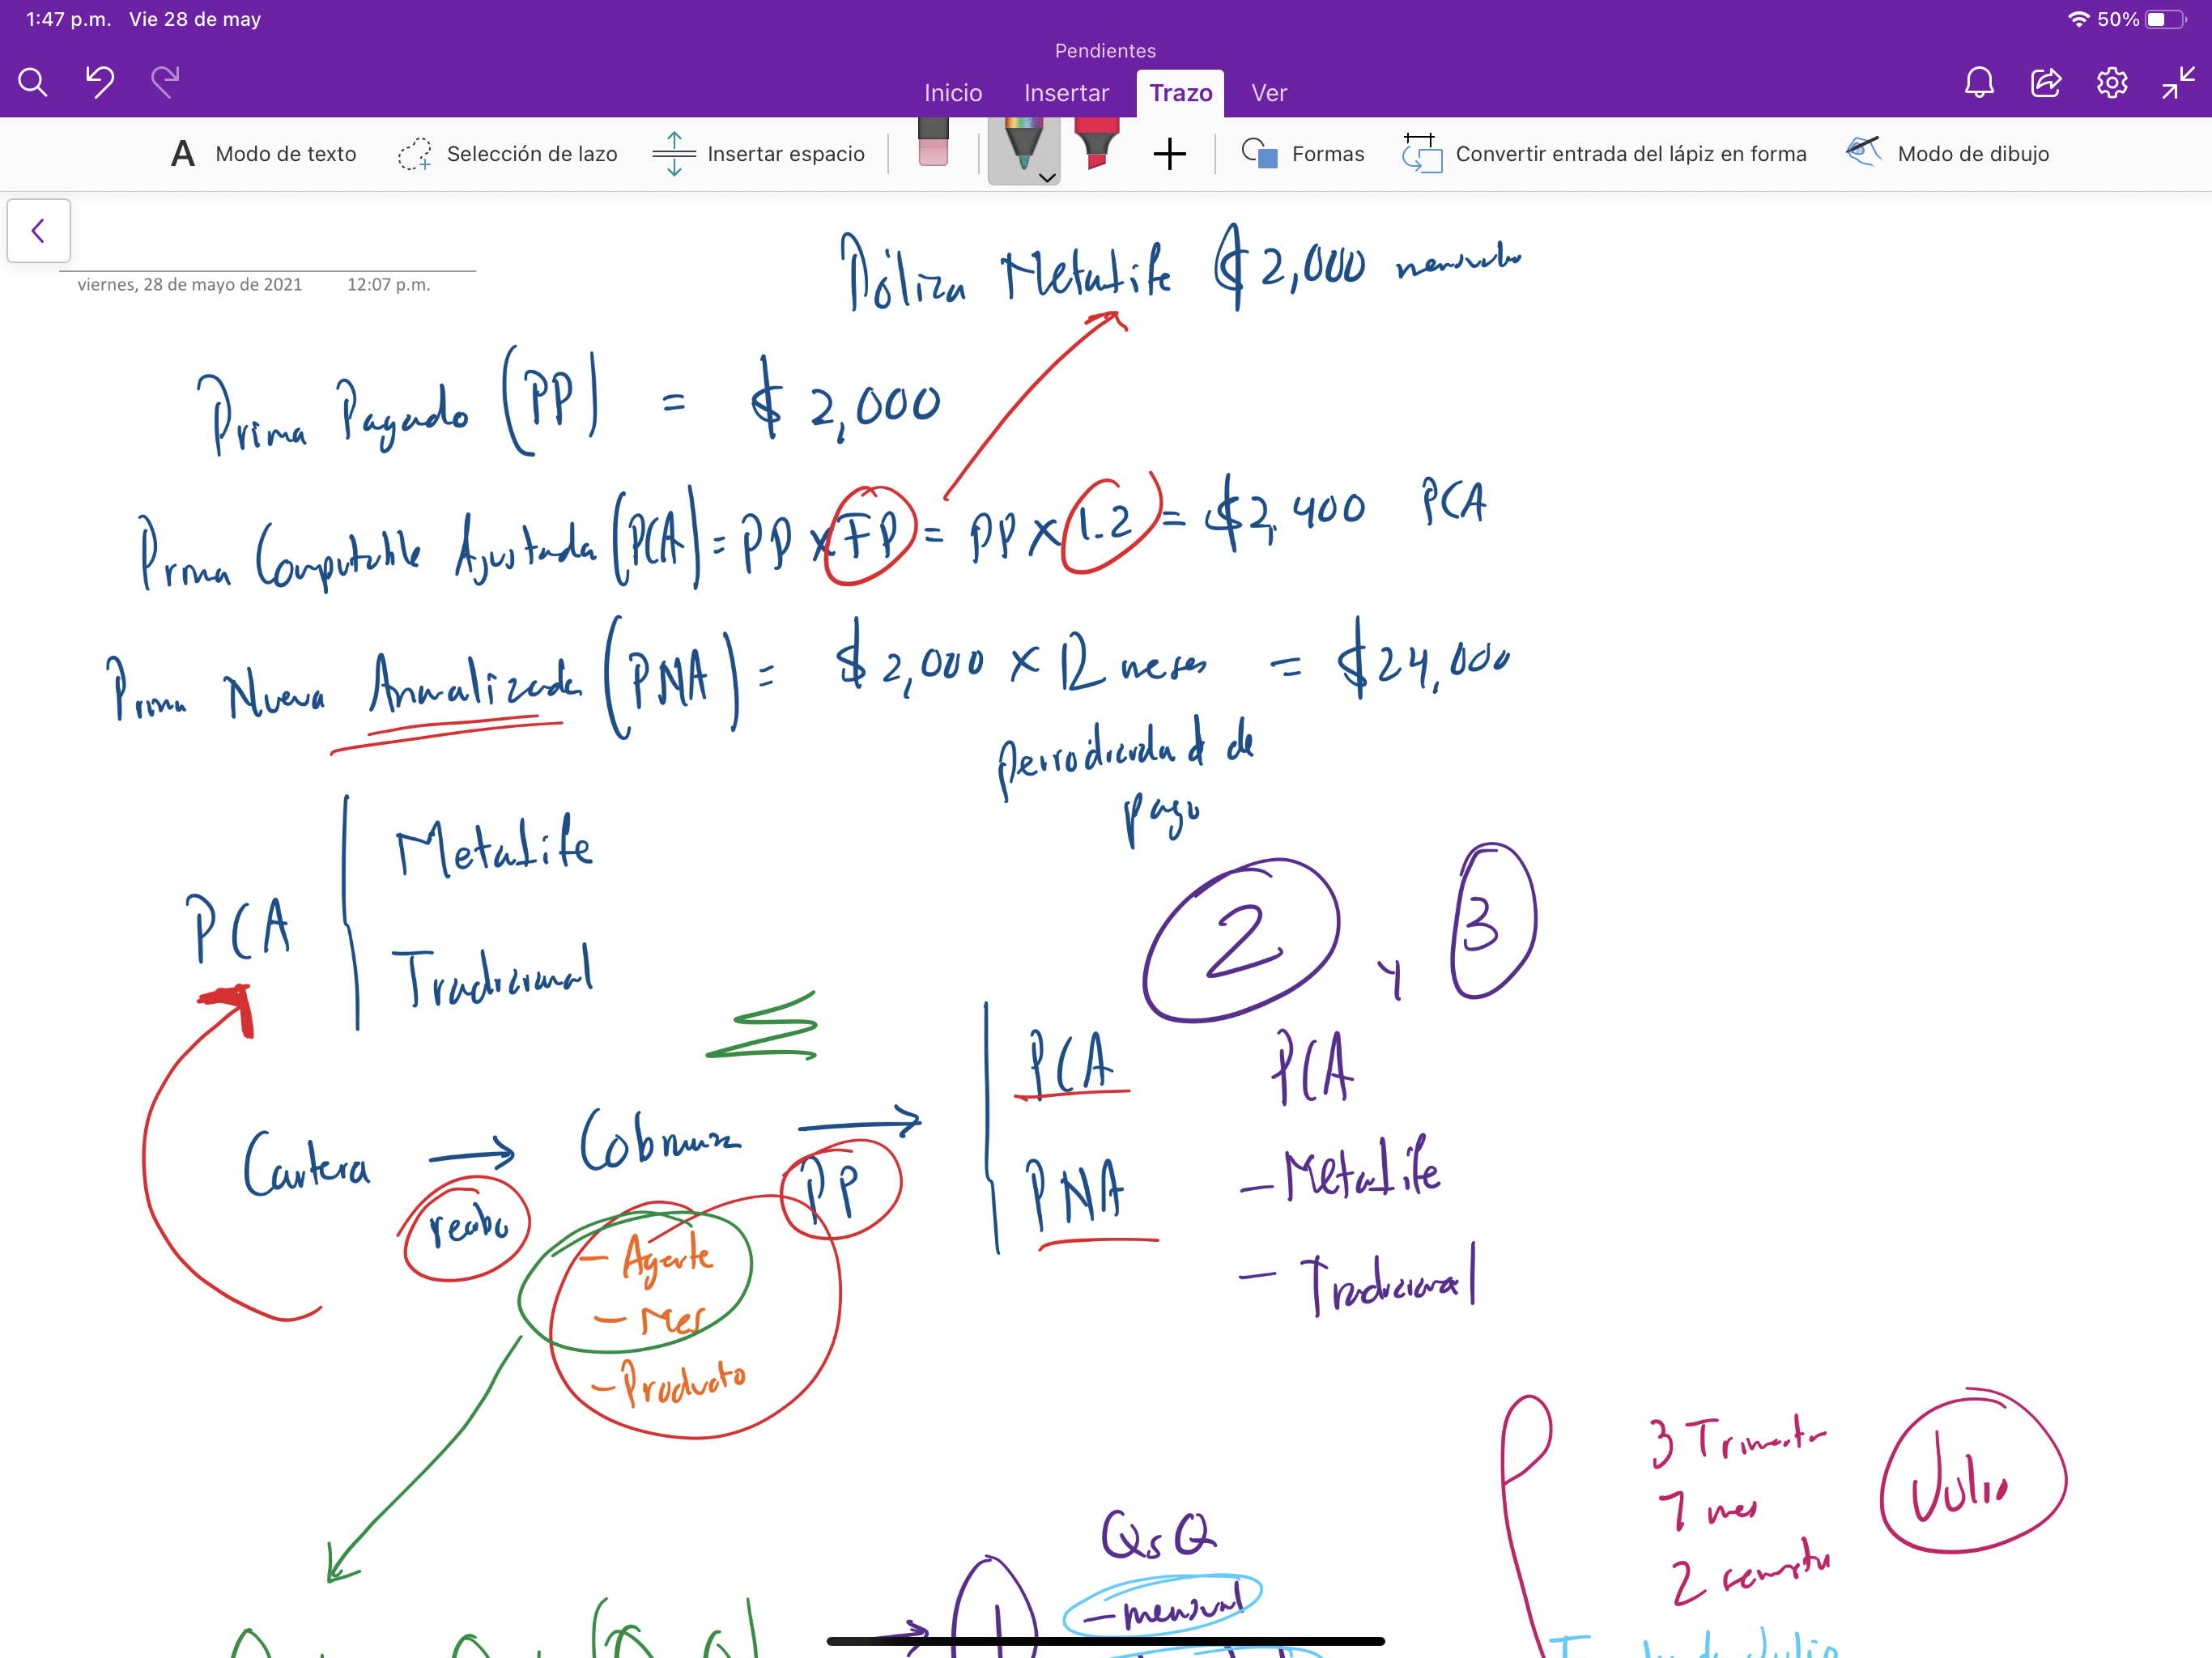 1:47 p.m. Vie 28 de may
50%
Pendientes
Inicio Insertar Trazo Ver
Modo de texto Selección de lazo Insertar espacio Formas Convertir entrada del lápiz en forma Modo de dibujo
viernes, 28 de mayo de 2021 12:07 p.m.
Póliza MetaLife $2,000 mensuales
Prima Pagada (PP) = $ 2,000
Prima Computable Ajustada (PCA) = PP x FP = PP x 1.2 = $2,400 PCA
Prima Nueva Annalizada (PNA) = $2,000 x 12 meses = $24,000
periodicidad de
pago
PCA
MetaLife
Tradicional
2 y 3
Cartera
recibo
Cobranza
PP
- Agente
- Mes
- Producto
PCA
PNA
PCA
- MetaLife
- Tradicional
3 Trimestre
7 mes
2 semestre
Julio
QsQ
- mensual
1